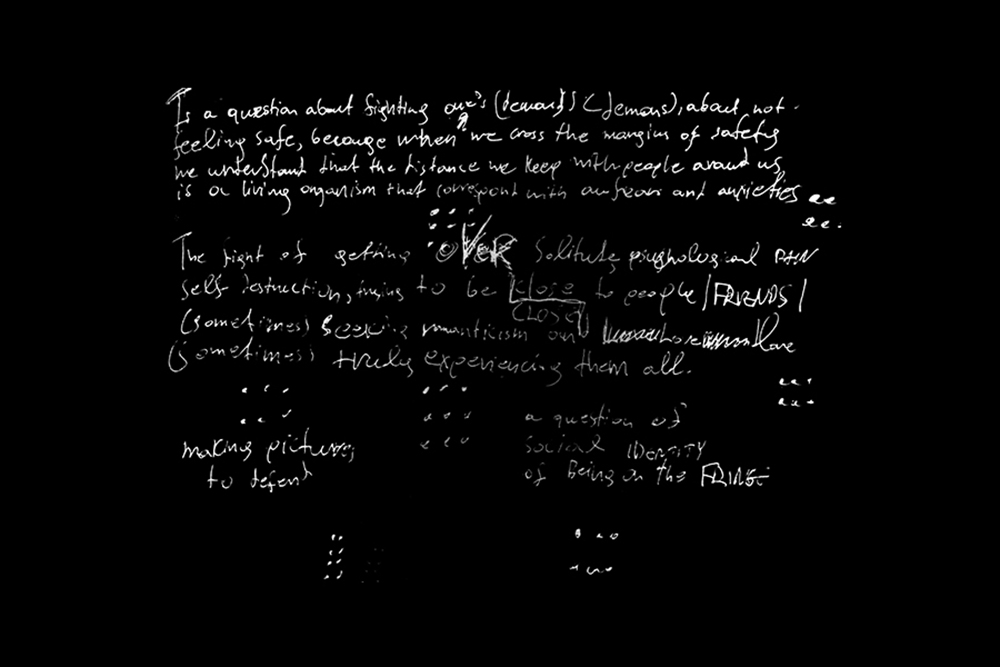 Is a question about fighting one's (demons) (demons), about not
feeling safe, because when we cross the margins of safety
we understand that the distance we keep with people around us
is a living organism that correspond with our fears and anxieties
The fight of getting OVER Solitude, psychological PAIN
self-destruction, trying to be close to people /FRIENDS/
CLOSE
(sometimes) seeking love
(sometimes) truly experiencing them all.
a question of
making pictures social IDENTITY
to defend of Being on the FRINGE